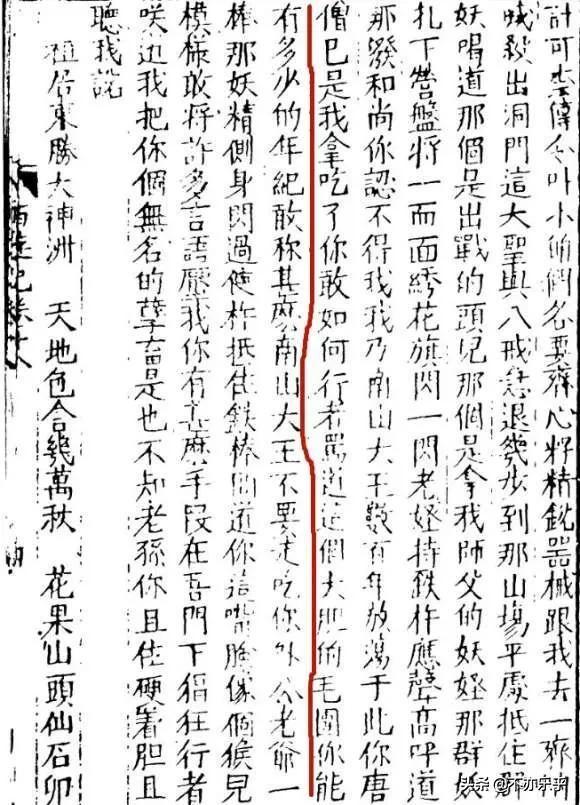 計可傳令叫小的們各要齊心將精銳器械跟我去一齊吶
喊殺出洞門這大聖與八戒急退幾步到那山場平處抵住群
妖喝道那個是出戰的頭兒那個是拿我師父的妖怪那群妖
扎下營盤將一面綉花旗閃一閃老怪持鉄杵應聲高呼道
那潑和尚你認不得我我乃南山大王數百年放蕩于此你唐
僧已是我拿吃了你敢如何行者罵道這個大胆的毛團你能
有多少的年紀敢称甚麽南山大王不要走吃你外公老爺一
棒那妖精側身閃過使杵抵住鉄棒道你這嘴臉像個猴兒
模樣敢將許多言語壓我你有甚麽手段在吾門下猖狂行者
咲道我把你個無名的孽畜是也不知老孫你且住硬着胆且
聽我說
祖居東勝大神洲　天地包含幾萬秋　花果山頭仙石卵
头条